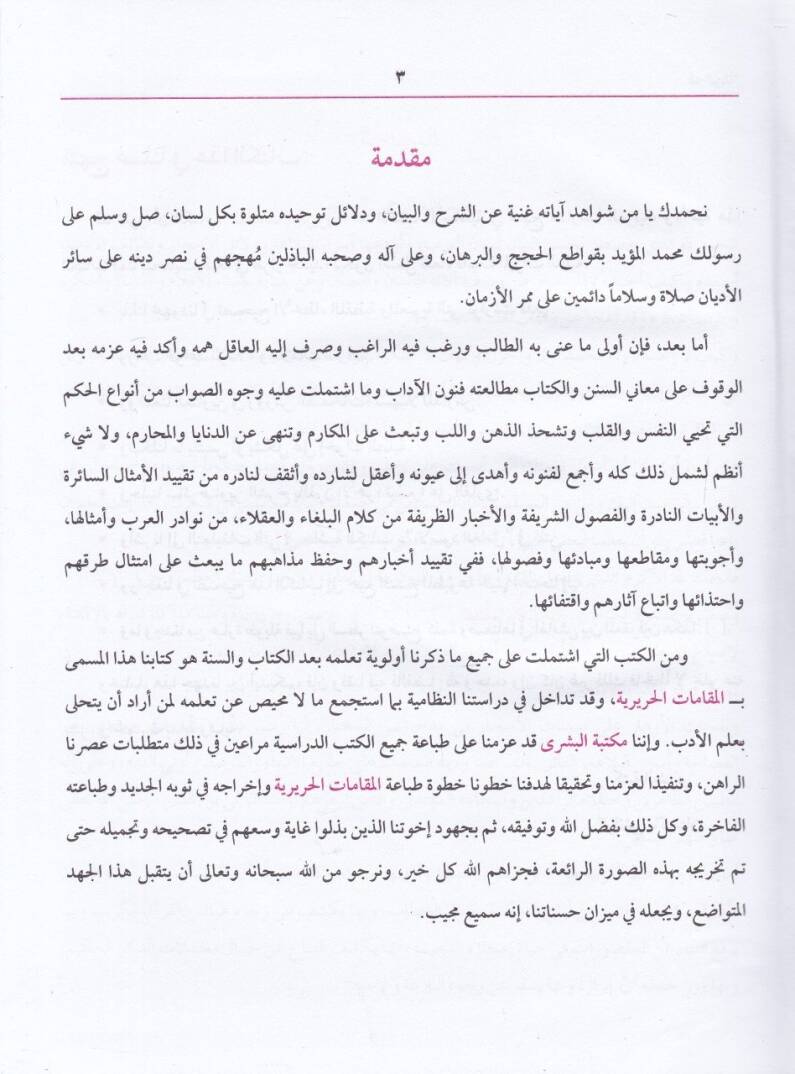 ٣
مقدمة
نحمدك يا من شواهد آياته غنية عن الشرح والبيان، ودلائل توحيده متلوة بكل لسان، صل وسلم على
رسولك محمد المؤيد بقواطع الحجج والبرهان، وعلى آله وصحبه الباذلين مُهجهم في نصر دينه على سائر
الأديان صلاة وسلاماً دائمين على ممر الأزمان.
أما بعد، فإن أولى ما عنى به الطالب ورغب فيه الراغب وصرف إليه العاقل همه وأكد فيه عزمه بعد
الوقوف على معاني السنن والكتاب مطالعته فنون الآداب وما اشتملت عليه وجوه الصواب من أنواع الحكم
التي تحيي النفس والقلب وتشحذ الذهن واللب وتبعث على المكارم وتنهى عن الدنايا والمحارم، ولا شيء
أنظم لشمل ذلك كله وأجمع لفنونه وأهدى إلى عيونه وأعقل لشارده وأثقف لنادره من تقييد الأمثال السائرة
والأبيات النادرة والفصول الشريفة والأخبار الظريفة من كلام البلغاء والعقلاء، من نوادر العرب وأمثالها،
وأجوبتها ومقاطعها ومبادئها وفصولها، ففي تقييد أخبارهم وحفظ مذاهبهم ما يبعث على امتثال طرقهم
واحتذائها واتباع آثارهم واقتفائها.
ومن الكتب التي اشتملت على جميع ما ذكرنا أولوية تعلمه بعد الكتاب والسنة هو كتابنا هذا المسمى
بــ المقامات الحريرية، وقد تداخل في دراستنا النظامية بما استجمع ما لا محيص عن تعلمه لمن أراد أن يتحلى
بعلم الأدب. وإننا مكتبة البشرى قد عزمنا على طباعة جميع الكتب الدراسية مراعين في ذلك متطلبات عصرنا
الراهن، وتنفيذا لعزمنا وتحقيقا لهدفنا خطونا خطوة طباعة المقامات الحريرية وإخراجه في ثوبه الجديد وطباعته
الفاخرة، وكل ذلك بفضل الله وتوفيقه، ثم بجهود إخوتنا الذين بذلوا غاية وسعهم في تصحيحه وتجميله حتى
تم تخريجه بهذه الصورة الرائعة، فجزاهم الله كل خير، ونرجو من الله سبحانه وتعالى أن يتقبل هذا الجهد
المتواضع، ويجعله في ميزان حسناتنا، إنه سميع مجيب.